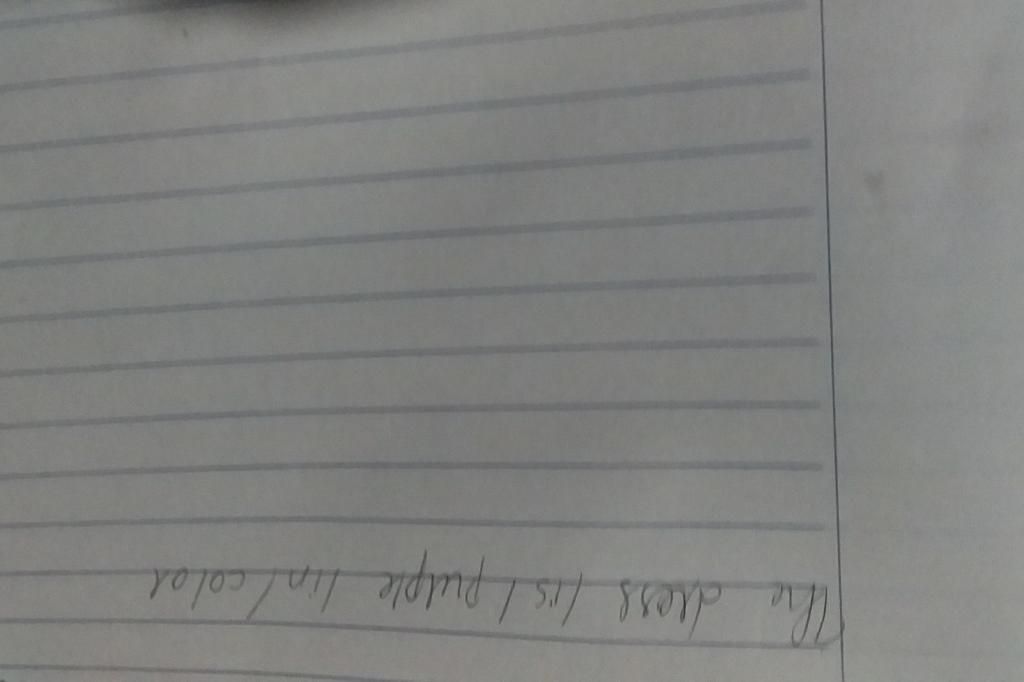 The dress /is/ purple /in/ color